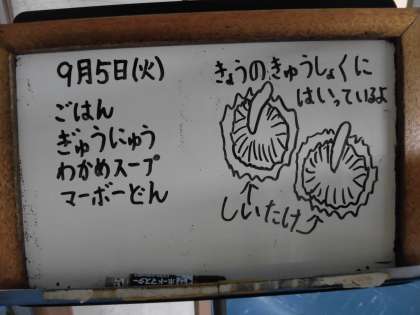 9月5日(火)
ごはん
ぎゅうにゅう
わかめスープ
マーボーどん
きょうのきゅうしょくに
はいっているよ
しいたけ
ボードマスター